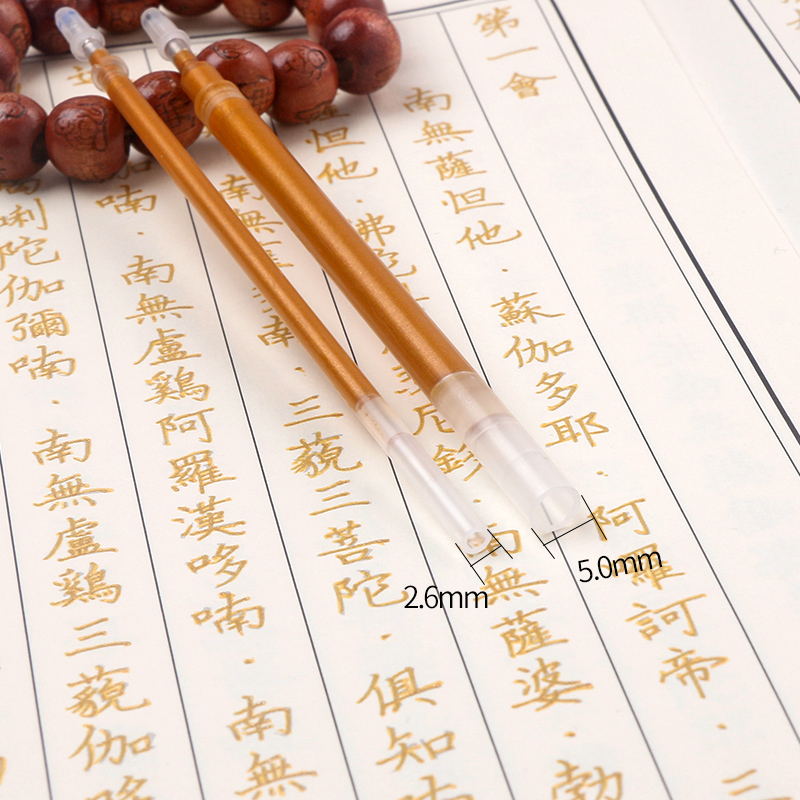 第一會
南無薩怛他·蘇伽多耶·阿羅訶帝·三
怛他·佛陀 尼釤·南無薩婆·勃
南無 ·三藐三菩陀·俱知
喃·南無盧鷄阿羅漢哆喃·南無
唎陀伽彌喃·南無盧鷄三藐伽哆
2.6mm
5.0mm